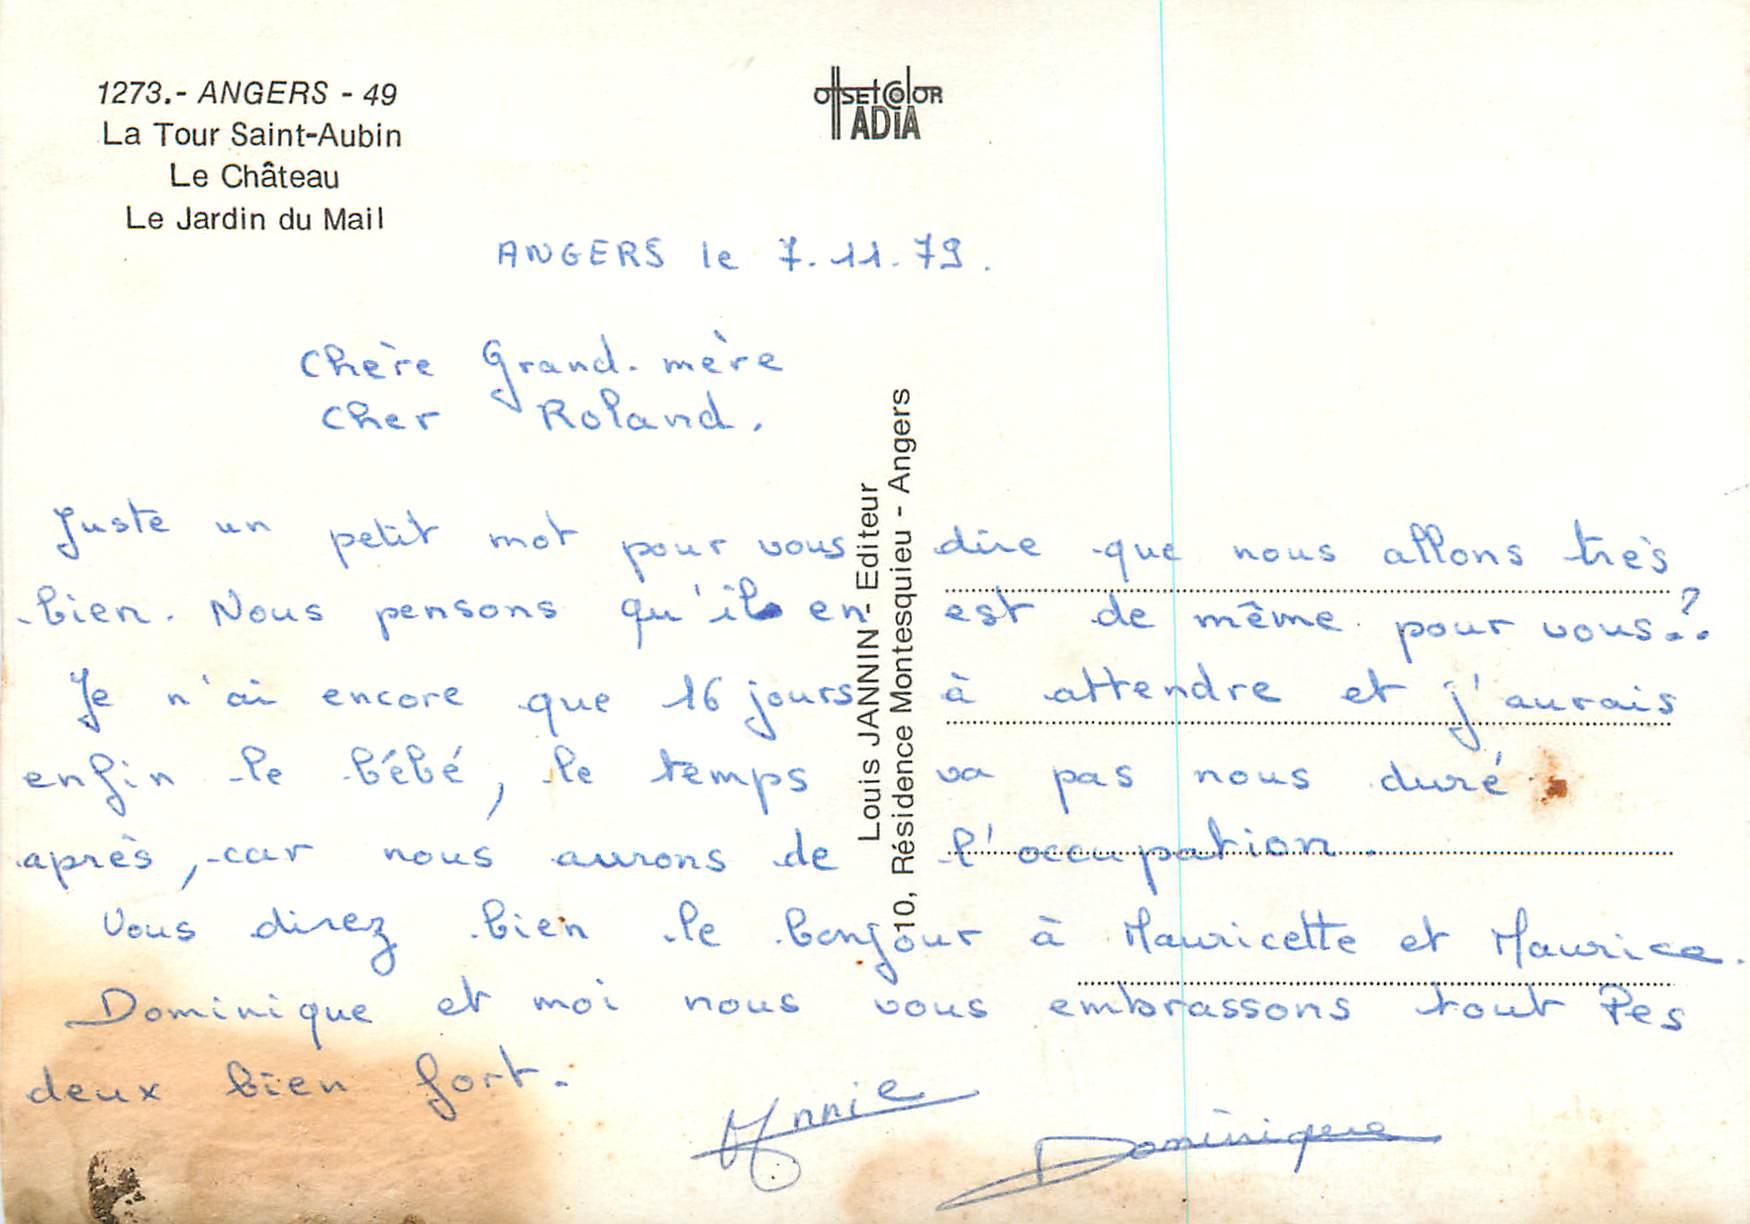 1273.- ANGERS - 49
La Tour Saint-Aubin
Le Château
Le Jardin du Mail
OffSEt COlOR
ADIA
ANGERS le 7.11.79.
Chère Grand-mère
Cher Roland,
Juste un petit mot pour vous dire que nous allons très
bien. Nous pensons qu'il en est de même pour vous..?
Je n'ai encore que 16 jours à attendre et j'aurais
enfin le bébé, le temps va pas nous duré
après, car nous aurons de l'occupation.
Vous direz bien le bonjour à Mauricette et Maurice.
Dominique et moi nous vous embrassons tout les
deux bien fort.
Annie
Dominique
Louis JANNIN - Editeur
10, Résidence Montesquieu - Angers